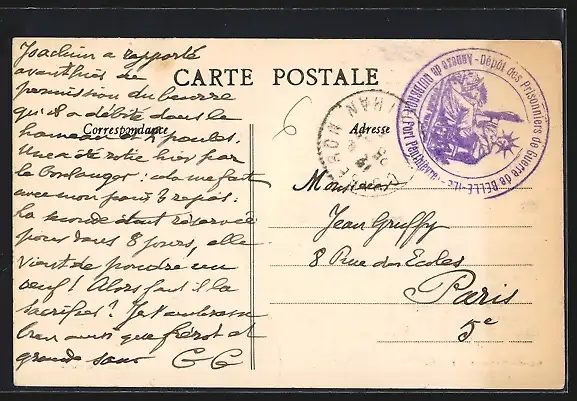 CARTE POSTALE
Correspondance
Adresse
Joachim a rapporté
avant hier de
permission du beurre
qu'il a débité dans le
hameau et 2 poules.
Une a été rôtie hier par
le boulanger : cela me fait
avec mon pain 3 repas.
La seconde étant réservée
pour dans 8 jours, elle
vient de pondre un
oeuf ! Alors faut il la
sacrifier ? Je t'embrasse
bien ainsi que frérot et
grande soeur GG
6
QUIBERON MORBIHAN
Dépôt des Prisonniers de Guerre de BELLE-ILE - Annexe de Quiberon (Fort Penthièvre)
Monsieur
Jean Gruffy
8 Rue des Ecoles
Paris
5e